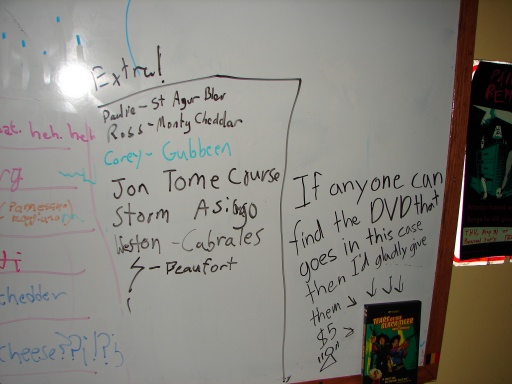 Extra!
Paulie - St Agur Blar
Ross - Monty Cheddar
Corey - Gubbeen
Jon Tome Course
Storm Asiago
Weston - Cabrales
- Beaufort
heh. heh
Parmesean
chedder
cheese??!?
If anyone can
find the DVD that
goes in this case
then I'd gladly give
them
$5